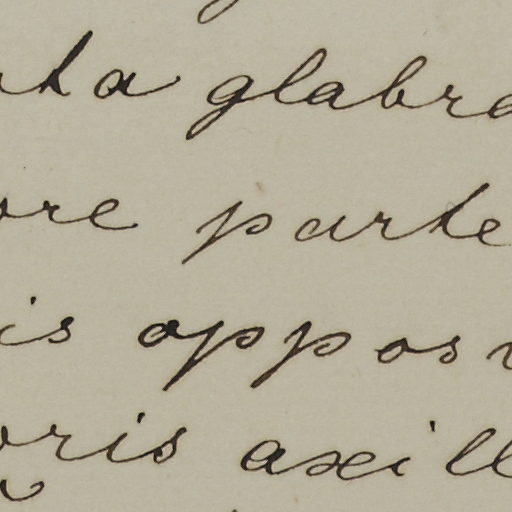 ta glabra
ore parte
is oppos
oris axill